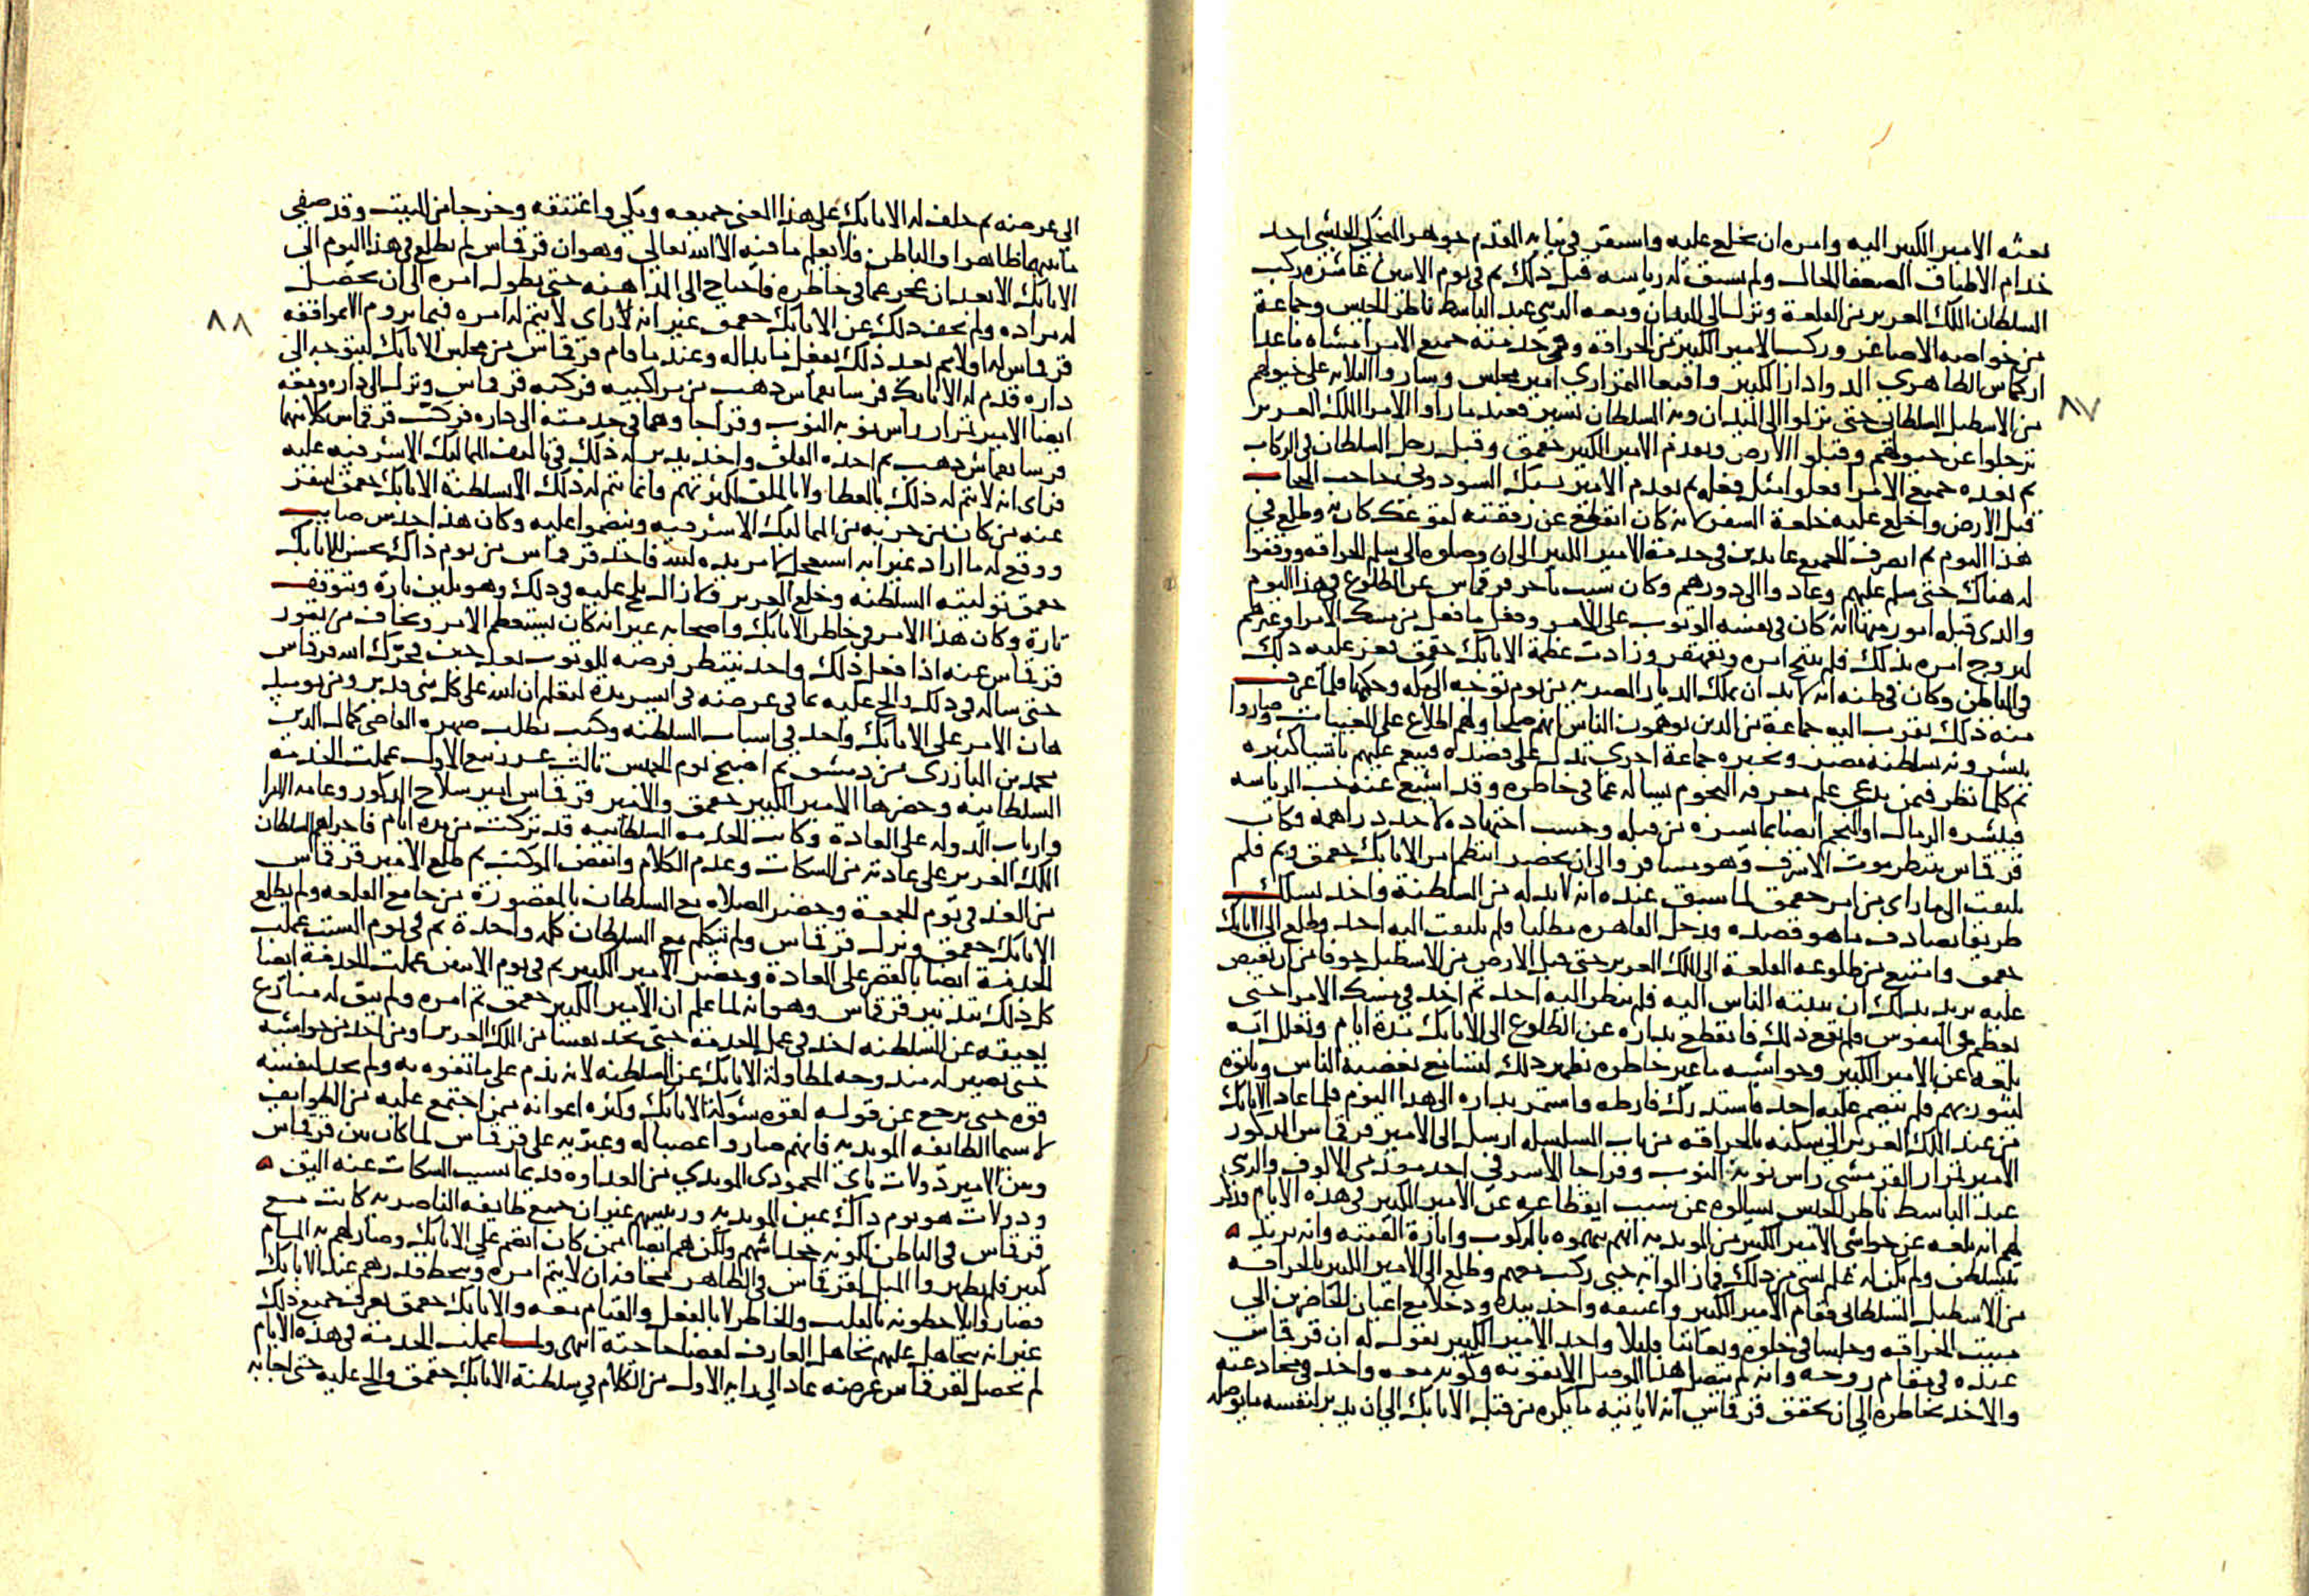 بعثه الامير الكبير اليه وامره ان يخلع عليه واستقر في نيابه المقدم جوهر المنجكي الحبشي احد
خدام الاطباق الضعفا الحال ولم يسبق له رياسه قبل ذلك ثم في يوم الاثنين عاشره ركب
السلطان الملك العزيز من القلعة ونزل الى الميدان ومعه الزيني عبد الباسط ناظر الجيس وجماعة
من خواصه الاصاغر وركب الامير الكبير من الحراقه وفي خدمته جميع الامرا مشاه ما عدا
اركماس الظاهري الدوادار الكبير واقبغا التمرازي امير مجلس وساروا الثلاثه على خيولهم
٨٧
من الاسطبل السلطاني حتى نزلوا الى الميدان وبه السلطان يسير فعند ما راوا الامرا الملك العزيز
ترجلوا عن خيولهم وقبلوا الارض وتقدم الامير الكبير جقمق وقبل رجل السلطان في الركاب
ثم بعده جميع الامرا فعلوا مثل فعله ثم تقدم الامير يشبك السودوني حاجب الحجاب
قبل الارض واخلع عليه خلعة السفر لانه كان انقطع عن رفقته لتوعك كان به وطلع في
هذا اليوم ثم انصرف الجميع عايدين في خدمة الامير الكبير الى ان وصلوه الى سلم الحراقه ووقفوا
له هناك حتى سلم عليهم وعادوا الى دورهم وكان سبب تاخر قرقماس عن الطلوع في هذا اليوم
والذي قبله امور منها انه كان في نفسه الوثوب على الامر وفعل ما فعل من مسك الامرا وغيرهم
ليروج امره بذلك فلم ينتج امره وتقهقر وزادت عظمة الاتابك جقمق فعز عليه ذلك
في الباطن وكان في ظنه انه لا بد ان يملك الديار المصريه من يوم توجه الى مكه وحكمها فلما عرف
منه ذلك تقرب اليه جماعة من الذين يوهمون الناس انهم صلحا ولهم اطلاع على المغيبات وصاروا
يبشرونه بسلطنة مصر وتخبره جماعة اخرى تدل على قصده فينعم عليهم باشيا كثيره
ثم كلما نظر فيمن يدعي علم معرفه النجوم يساله عما في خاطره وقد اشيع عنه حب الرياسه
فيبشره الرمال او المنجم ايضا بما يسره من قبله وحسب اجتهاده لاخذ دراهمه وكان
قرقماس ينتظر موت الاشرف وهو مسافر والى ان يحضر انتظم امر الاتابك جقمق وتم فلم
يلتفت الى ما راى من امر جقمق لما سبق عنده انه لا بد له من السلطنة واخذ يسلك
طريقا يصادف ما هو قصده ودخل القاهره مطلبا ولم يلتفت اليه احد وطلع الى الاتابك
جقمق وامتنع من طلوعه القلعة الى الملك العزيز حتى قبل الارض من الاسطبل خوفا من ان يقبض
عليه يريد بذلك ان يبنه الناس اليه فلم ينظر اليه احد ثم اخذ في مسك الامرا حتى
يعظم في النفوس فلم يقع ذلك فانقطع بداره عن الطلوع الى الاتابك مدة ايام وتعلل انه
بلغه عن الامير الكبير وحواشيه ما غير خاطره يظهر ذلك ليتسامع بغضبه الناس ويلوه
ليثور بهم فلم ينضم عليه احد فاستدرك فارطه واستمر بداره الى هذا اليوم فلما عاد الاتابك
من عند الملك العزيز الى سكنه بالحراقه من باب السلسله ارسل الى الامير قرقماس المذكور
الامير تمراز القرمشي راس نوبه النوب وقراجا الاشرفي احد مقدمي الالوف والزيني
عبد الباسط ناظر الجيس يسالوه عن سبب انقطاعه عن الامير الكبير في هذه الايام فذكر
لهم انه بلغه عن حواشي الامير الكبير من المويديه انهم يتهموه بالركوب واثارة الفتنه وانه يريد
يتسلطن ولم يكن له علم بشي من ذلك فما زالوا به حتى ركب معهم وطلع الى الامير الكبير بالحراقه
من الاسطبل السلطاني فقام الامير الكبير واعتنقه واخذ بيده ودخلا مع اعيان الحاضرين الى
مبيت الحراقه وجلسا في خلوة وتعاتبا قليلا واخذ الامير الكبير يقول له ان قرقماس
عنده في مقام روحه وانه لم يتصل هذا الموصل الا بقوته وكونه معه واخذ في مخادعته
والاخذ بخاطره الى ان تحقق قرقماس انه لا ياتيه ما يكره من قبل الاتابك الى ان يدبر لنفسه ما يوصله
الى غرضه ثم حلف له الاتابك على هذا المعنى جميعه وبكى واعتنقه وخرجا من المبيت وقد صفي
ما بينهما ظاهرا والباطن فلا يعلم ما فيه الا الله تعالى وهو ان قرقماس لم يطلع في هذا اليوم الى
الاتابك الا بعد ان عجز عما في خاطره فاحتاج الى المداهنه حتى يطول امره الى ان يحصل
له مراده ولم يخف ذلك عن الاتابك جقمق غير انه لا راى لا يتم له امره فيما يروم الا بموافقه
٨٨
قرقماس له اولا ثم بعد ذلك يفعل ما بدا له وعند ما قام قرقماس من مجلس الاتابك ليتوجه الى
داره قدم له الاتابك فرسا بقماش ذهب من مراكيبه فركبه قرقماس ونزل الى داره ومعه
ايضا الامير تمراز راس نوبه النوب وقراجا وهما في خدمته الى داره فركب قرقماس كلا منهما
فرسا بقماش ذهب ثم اخذه القلق واخذ يدبر له ذلك في تاليف المماليك الاشرفيه عليه
فراى انه لا يتم له ذلك بالعطا ولا بالملق لكثرتهم وانما يتم له ذلك الا بسلطنة الاتابك جقمق لينفر
عنه من كان من حزبه من المماليك الاشرفيه وينضموا عليه وكان هذا حدس صايب
ووقع له ما اراد غير انه استعجل لامر يريده الله فاخذ قرقماس من يوم ذاك يحسن للاتابك
جقمق توليته السلطنة وخلع العزيز فكان الح عليه في ذلك وهو يلين تارة ويتوقف
تارة وكان هذا الامر في خاطر الاتابك واصحابه غير انه كان يستعظم الامر ويخاف من نفور
قرقماس عنه اذا فعل ذلك واخذ ينتظر فرصة للوثوب بعد حين فحرك الله قرقماس
حتى ساله في ذلك والح عليه بما في غرضه في ايسر يده ليعلم ان الله على كل شي قدير ومن يومئذ
هان الامر على الاتابك واخذ في اسباب السلطنه وكتب بطلب صهره القاضي كمال الدين
محمد بن البارزي من دمشق ثم اصبح يوم الخميس ثالث عشر ربيع الاول عملت الخدمة
السلطانيه وحضرها الامير الكبير جقمق والامير قرقماس امير سلاح المذكور وعامه الامرا
وارباب الدوله على العادة وكانت الخدمه السلطانيه قد تركت من مده ايام فاجراهم السلطان
الملك العزيز على عادته من السكات وعدم الكلام وانفض الموكب ثم طلع الامير قرقماس
من الغد في يوم الجمعة وحضر الصلاه مع السلطان بالمقصورة من جامع القلعه ولم يطلع
الاتابك جقمق ونزل قرقماس ولم يتكلم مع السلطان كلمه واحدة ثم في يوم السبت عملت
الخدمة ايضا بالقصر على العادة وحضر الامير الكبير ثم في يوم الاثنين عملت الخدمة ايضا
كل ذلك بتدبير قرقماس وهو انه لما علم ان الامير الكبير جقمق تم امره ولم يبق له منازع
يعيقه عن السلطنه اخذ في عمل الخدمة حتى يجد نفسا من الملك العزيز او من احد من حواشيه
حتى يصير له مندوحه لمطاولة الاتابك عن السلطنه لانه ندم على ما تفوه به ولم يجد لنفسه
قوه حتى يرجع عن قوله لقوه شوكة الاتابك وكثره اعوانه ممن اجتمع عليه من الطوايف
لا سيما الطايفه المويديه فانهم صاروا عصبا له وغيريه على قرقماس لما كان بين قرقماس
وبين الامير دولات باي المحمودي المويدي من العداوه قديما بسبب السكات عنه اليق
ودولات هو يوم ذاك عين المويديه ورييسهم غير ان جميع طايفه الناصريه كانت مع
قرقماس في الباطن لكونه خجداشهم ولكن هم ايضا ممن كان انضم على الاتابك وصار لهم به المام
كبير فلم يظهروا الميل لقرقماس في الظاهر مخافة ان لا يتم امره ويحط قدرهم عند الاتابك
فصاروا يلاحظونه بالقلب والخاطر لا بالفعل والقيام معه والاتابك جقمق يعرف جميع ذلك
غير انه يتجاهل عليهم تجاهل العارف لقضا حاجته انتهى ولما عملت الخدمة في هذه الايام
لم يحصل لقرقماس غرضه عاد الى دابه الاول من الكلام في سلطنة الاتابك جقمق والح عليه حتى اجابه